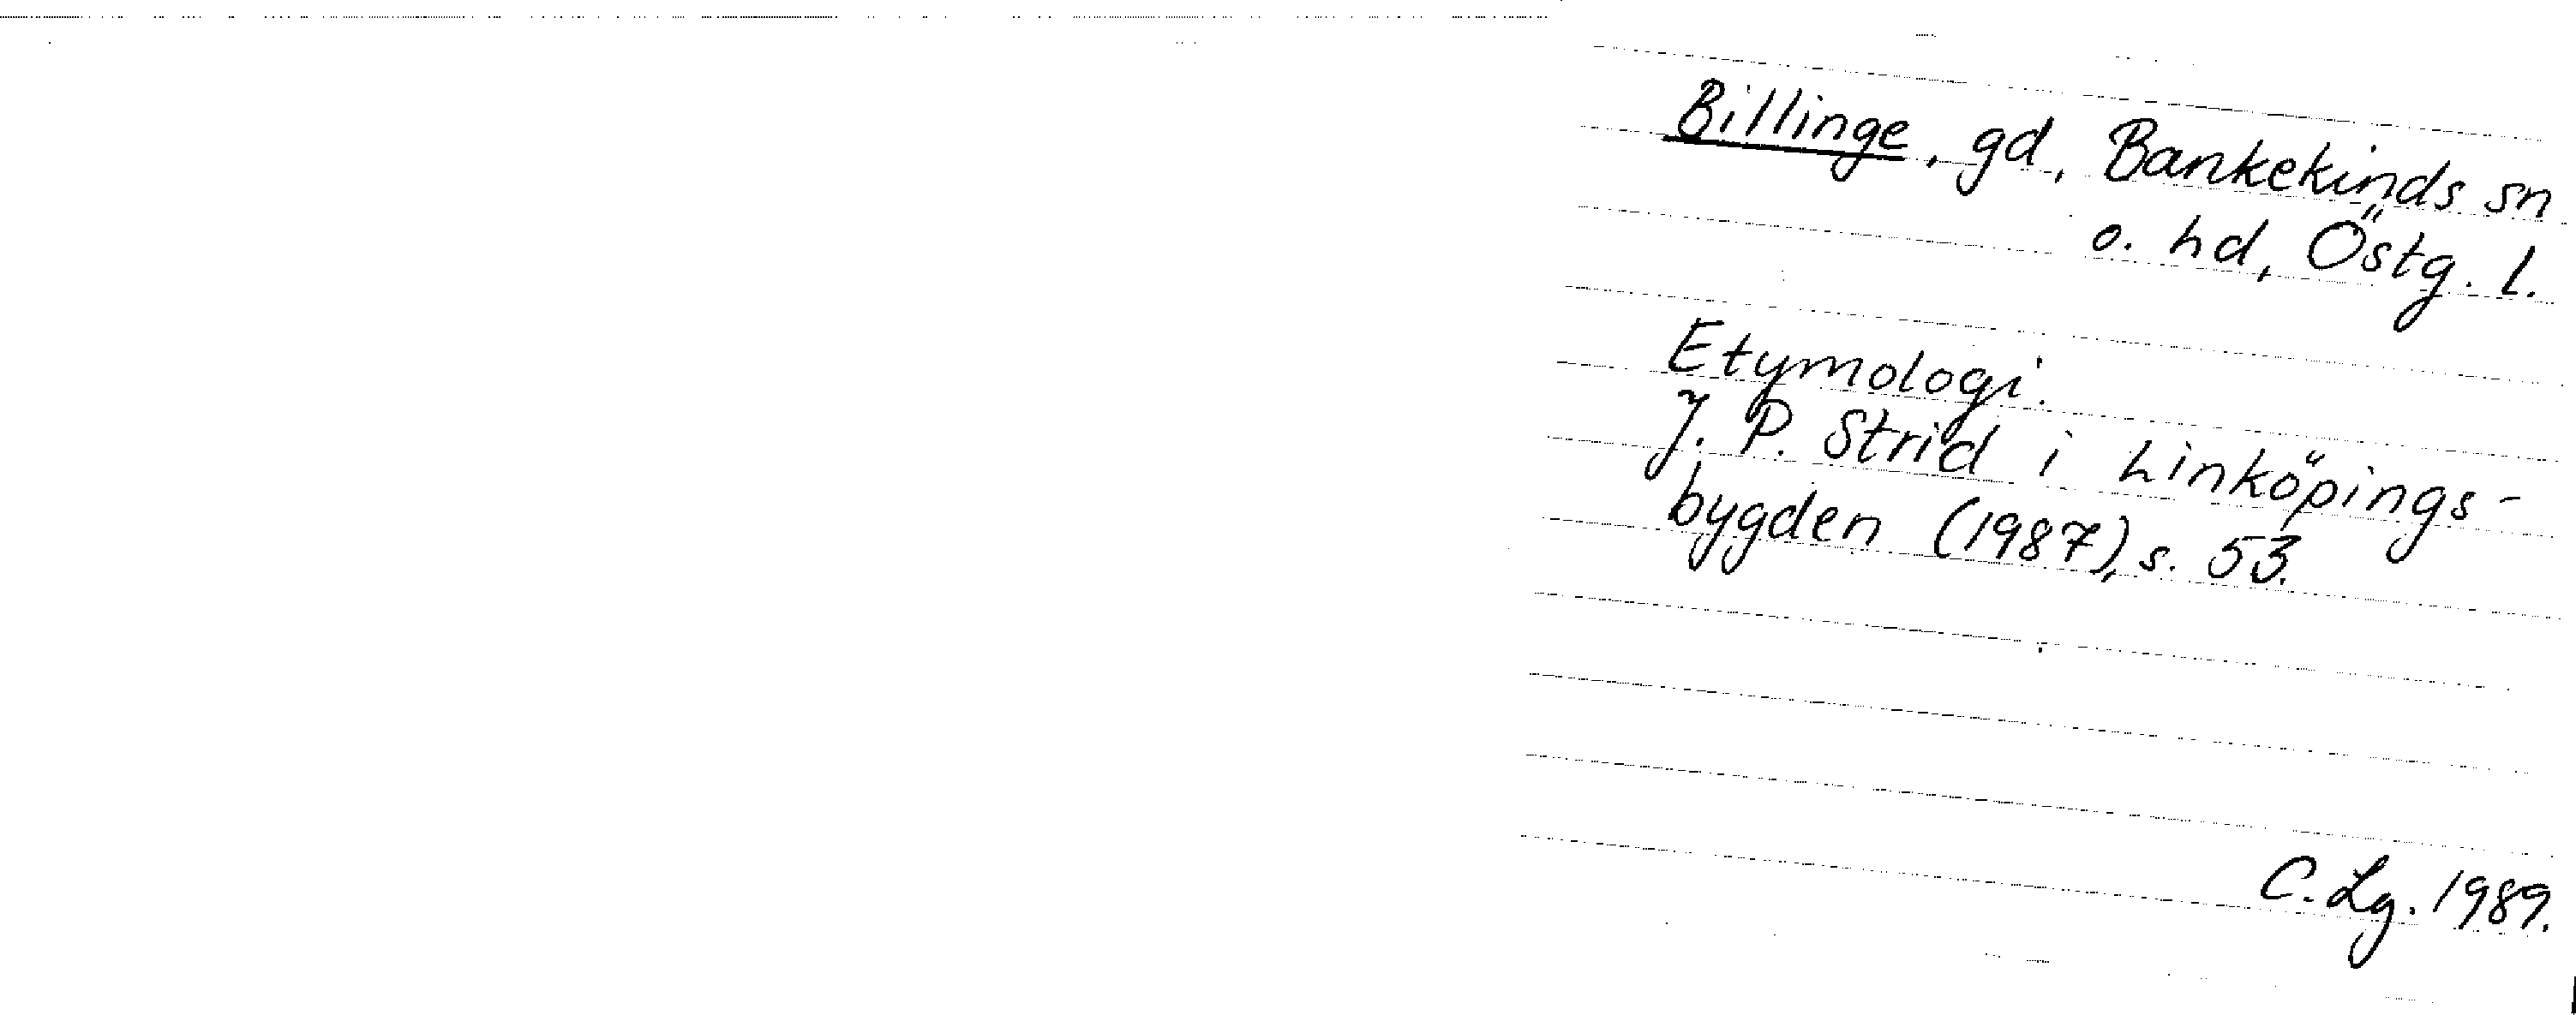 Billinge, gd, Bankekinds sn
o. hd, Östg. l.
Etymologi.
J. P. Strid i Linköpings-
bygden (1987), s. 53.
C. Lg. 1989.